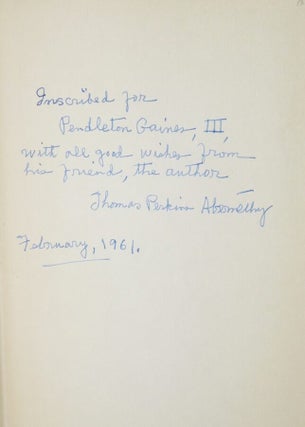 Inscribed for
Pendleton Gaines, III,
with all good wishes from
his friend, the author —
Thomas Perkins Abernethy
February, 1961.